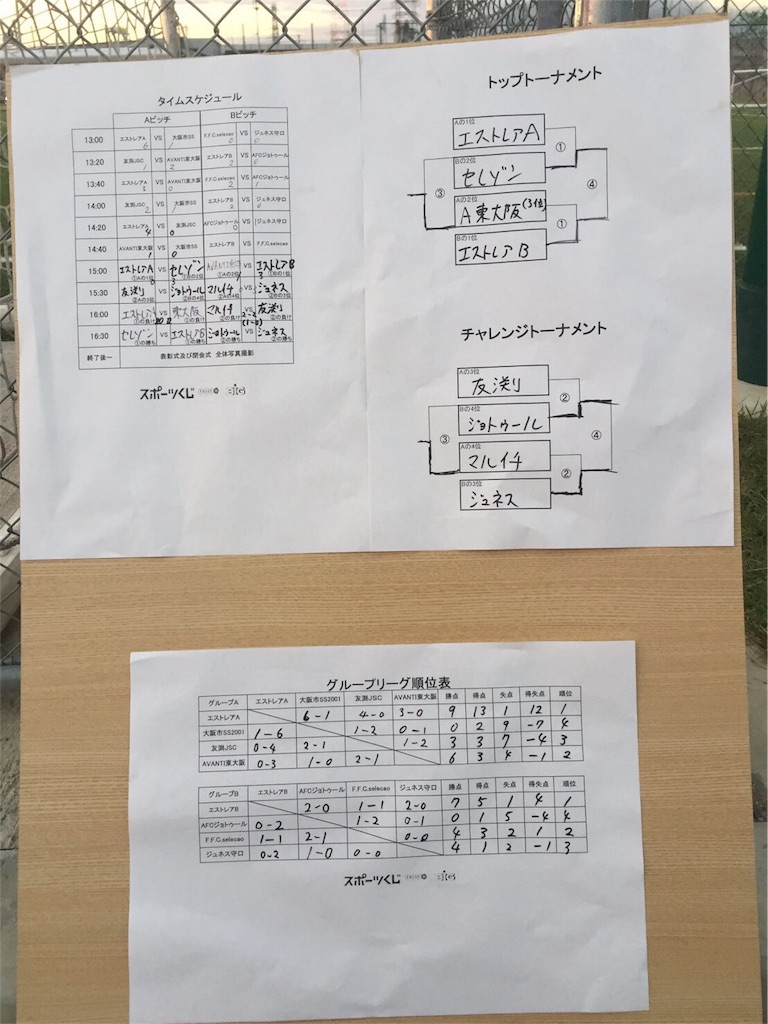 タイムスケジュール
Aピッチ Bピッチ
13:00 エストレアA 6 VS 大阪市SS 1 F.F.C.selecao 0 VS ジュネス守口 0
13:20 友渕JSC 1 VS AVANTI東大阪 2 エストレアB 2 VS AFCジョトゥール 0
13:40 エストレアA 3 VS AVANTI東大阪 0 F.F.C.selecao 2 VS AFCジョトゥール 1
14:00 友渕JSC 2 VS 大阪市SS 1 エストレアB 2 VS ジュネス守口 0
14:20 エストレアA 4 VS 友渕JSC 0 AFCジョトゥール 0 VS ジュネス守口
14:40 AVANTI東大阪 1 VS 大阪市SS 0 エストレアB VS F.F.C.selecao
15:00 エストレアA VS セレゾン VS エストレアB
①Aの1位 ①Bの2位 ①Aの2位 ①Bの1位
15:30 友渕 VS ジョトゥール マルイチ VS ジュネス
②Aの3位 ②Bの4位 ②Aの4位 ②Bの3位
16:00 エストレア VS 東大阪 マルイチ 2-2 VS 友渕
①の負け ①の負け ②の負け (1-0) ②の負け
16:30 セレゾン VS エストレアB ジョトゥール VS ジュネス
①の勝ち ①の勝ち ②の勝ち ②の勝ち
終了後~ 表彰式及び閉会式 全体写真撮影
スポーツくじ
トップトーナメント
Aの1位
エストレアA
①
Bの2位
セレゾン
③ ④
Aの2位
A東大阪(3位)
①
Bの1位
エストレアB
チャレンジトーナメント
Aの3位
友渕
②
Bの4位
ジョトゥール
③ ④
Aの4位
マルイチ
②
Bの3位
ジュネス
グループリーグ順位表
グループA エストレアA 大阪市SS2001 友渕JSC AVANTI東大阪 勝点 得点 失点 得失点 順位
エストレアA 6-1 4-0 3-0 9 13 1 12 1
大阪市SS2001 1-6 1-2 0-1 0 2 9 -7 4
友渕JSC 0-4 2-1 1-2 3 3 7 -4 3
AVANTI東大阪 0-3 1-0 2-1 6 3 4 -1 2
グループB エストレアB AFCジョトゥール F.F.C.selecao ジュネス守口 勝点 得点 失点 得失点 順位
エストレアB 2-0 1-1 2-0 7 5 1 4 1
AFCジョトゥール 0-2 1-2 0-1 0 1 5 -4 4
F.F.C.selecao 1-1 2-1 0-0 4 3 2 1 2
ジュネス守口 0-2 1-0 0-0 4 1 2 -1 3
スポーツくじ